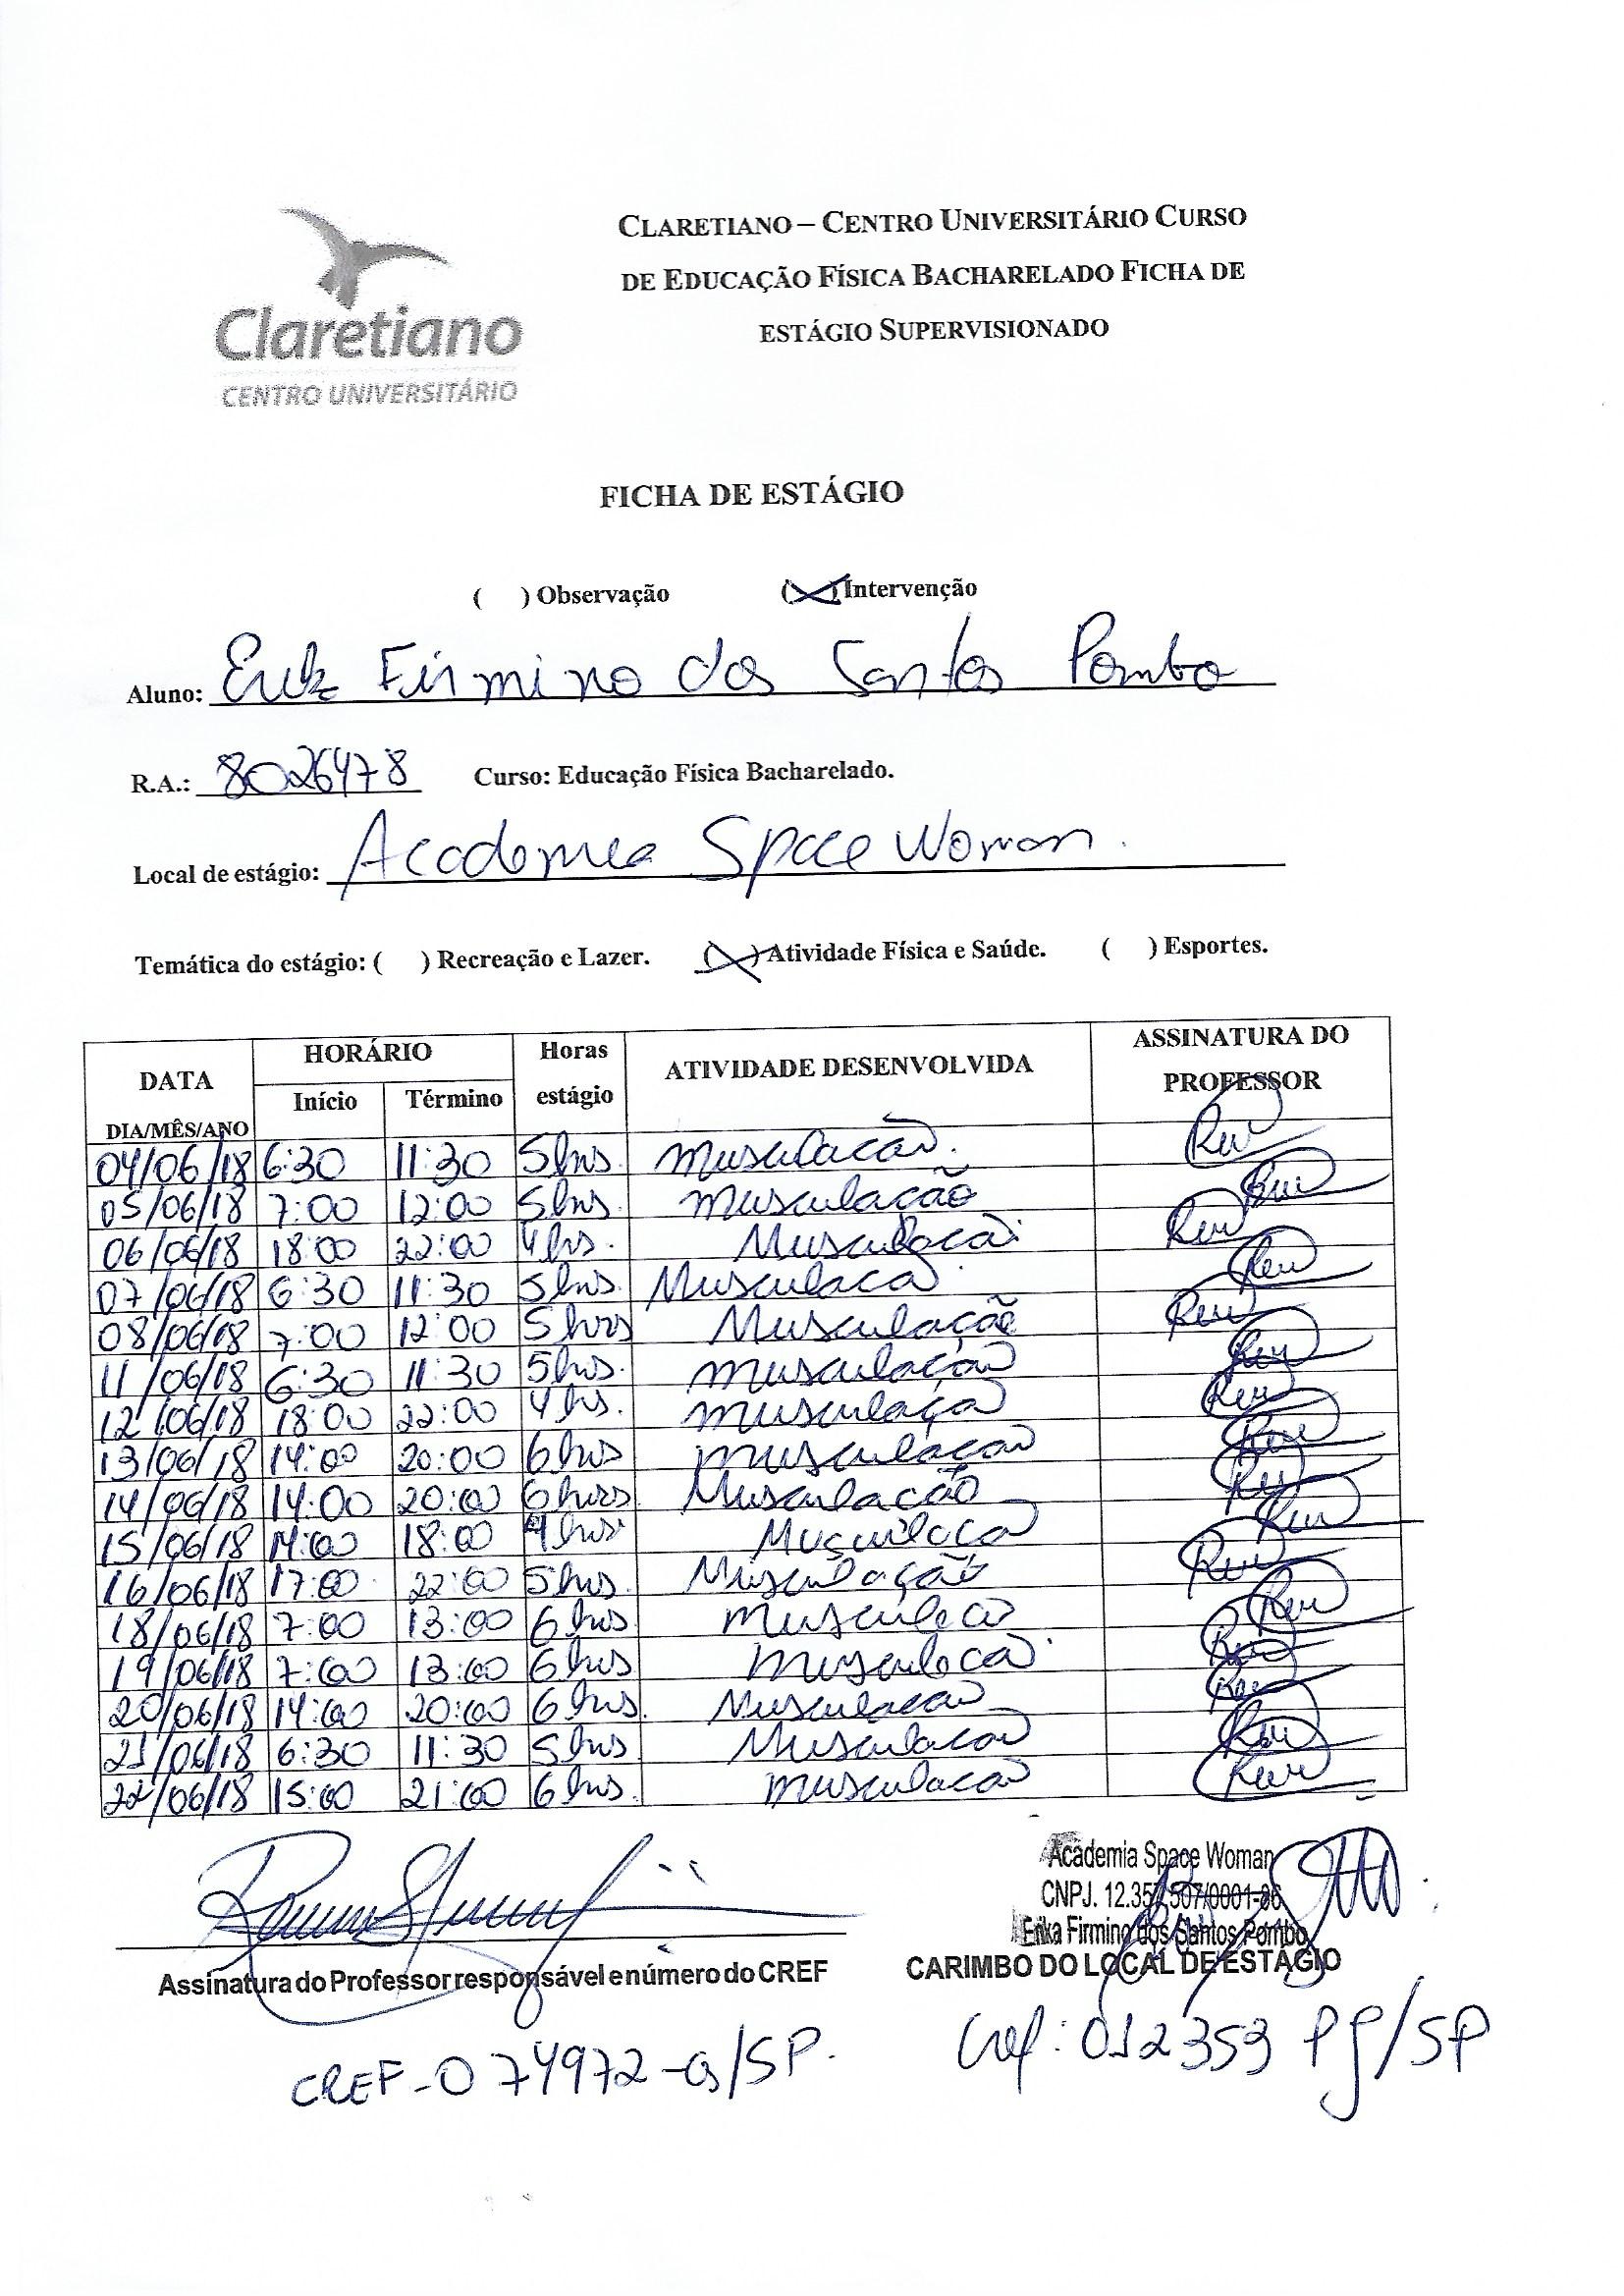 Claretiano
CENTRO UNIVERSITÁRIO
CLARETIANO – CENTRO UNIVERSITÁRIO CURSO
DE EDUCAÇÃO FÍSICA BACHARELADO FICHA DE
ESTÁGIO SUPERVISIONADO
FICHA DE ESTÁGIO
( ) Observação (X) Intervenção
Aluno: Erika Firmino dos Santos Pombo
R.A.: 8026478 Curso: Educação Física Bacharelado.
Local de estágio: Academia Space Woman.
Temática do estágio: ( ) Recreação e Lazer. (X) Atividade Física e Saúde. ( ) Esportes.
DATA DIA/MÊS/ANO HORÁRIO Início Término Horas estágio ATIVIDADE DESENVOLVIDA ASSINATURA DO PROFESSOR
04/06/18 6:30 11:30 5hrs. Musculacão.
05/06/18 7:00 12:00 5hrs. Musculação
06/06/18 18:00 22:00 4hs. Musculação
07/06/18 6:30 11:30 5hrs. Musculaca
08/06/18 7:00 12:00 5hrs Musculação
11/06/18 6:30 11:30 5hrs. Musculação
12/06/18 18:00 22:00 4hs. Musculaça
13/06/18 14:00 20:00 6hrs Musculação
14/06/18 14:00 20:00 6hrs Musculacão
15/06/18 14:00 18:00 4hrs
16/06/18 17:00 22:00 5hrs. Musculação
18/06/18 7:00 13:00 6hrs
19/06/18 7:00 13:00 6hrs
20/06/18 14:00 20:00 6hrs. Musculacão
21/06/18 6:30 11:30 5hrs Musculacão
22/06/18 15:00 21:00 6hrs. Musculacão
Academia Space Woman
CNPJ. 12.357.507/0001-86
Erika Firmino dos Santos Pombo
Assinatura do Professor responsável e número do CREF CARIMBO DO LOCAL DE ESTÁGIO
CREF-074972-G/SP. Cref: 012353 PJ/SP